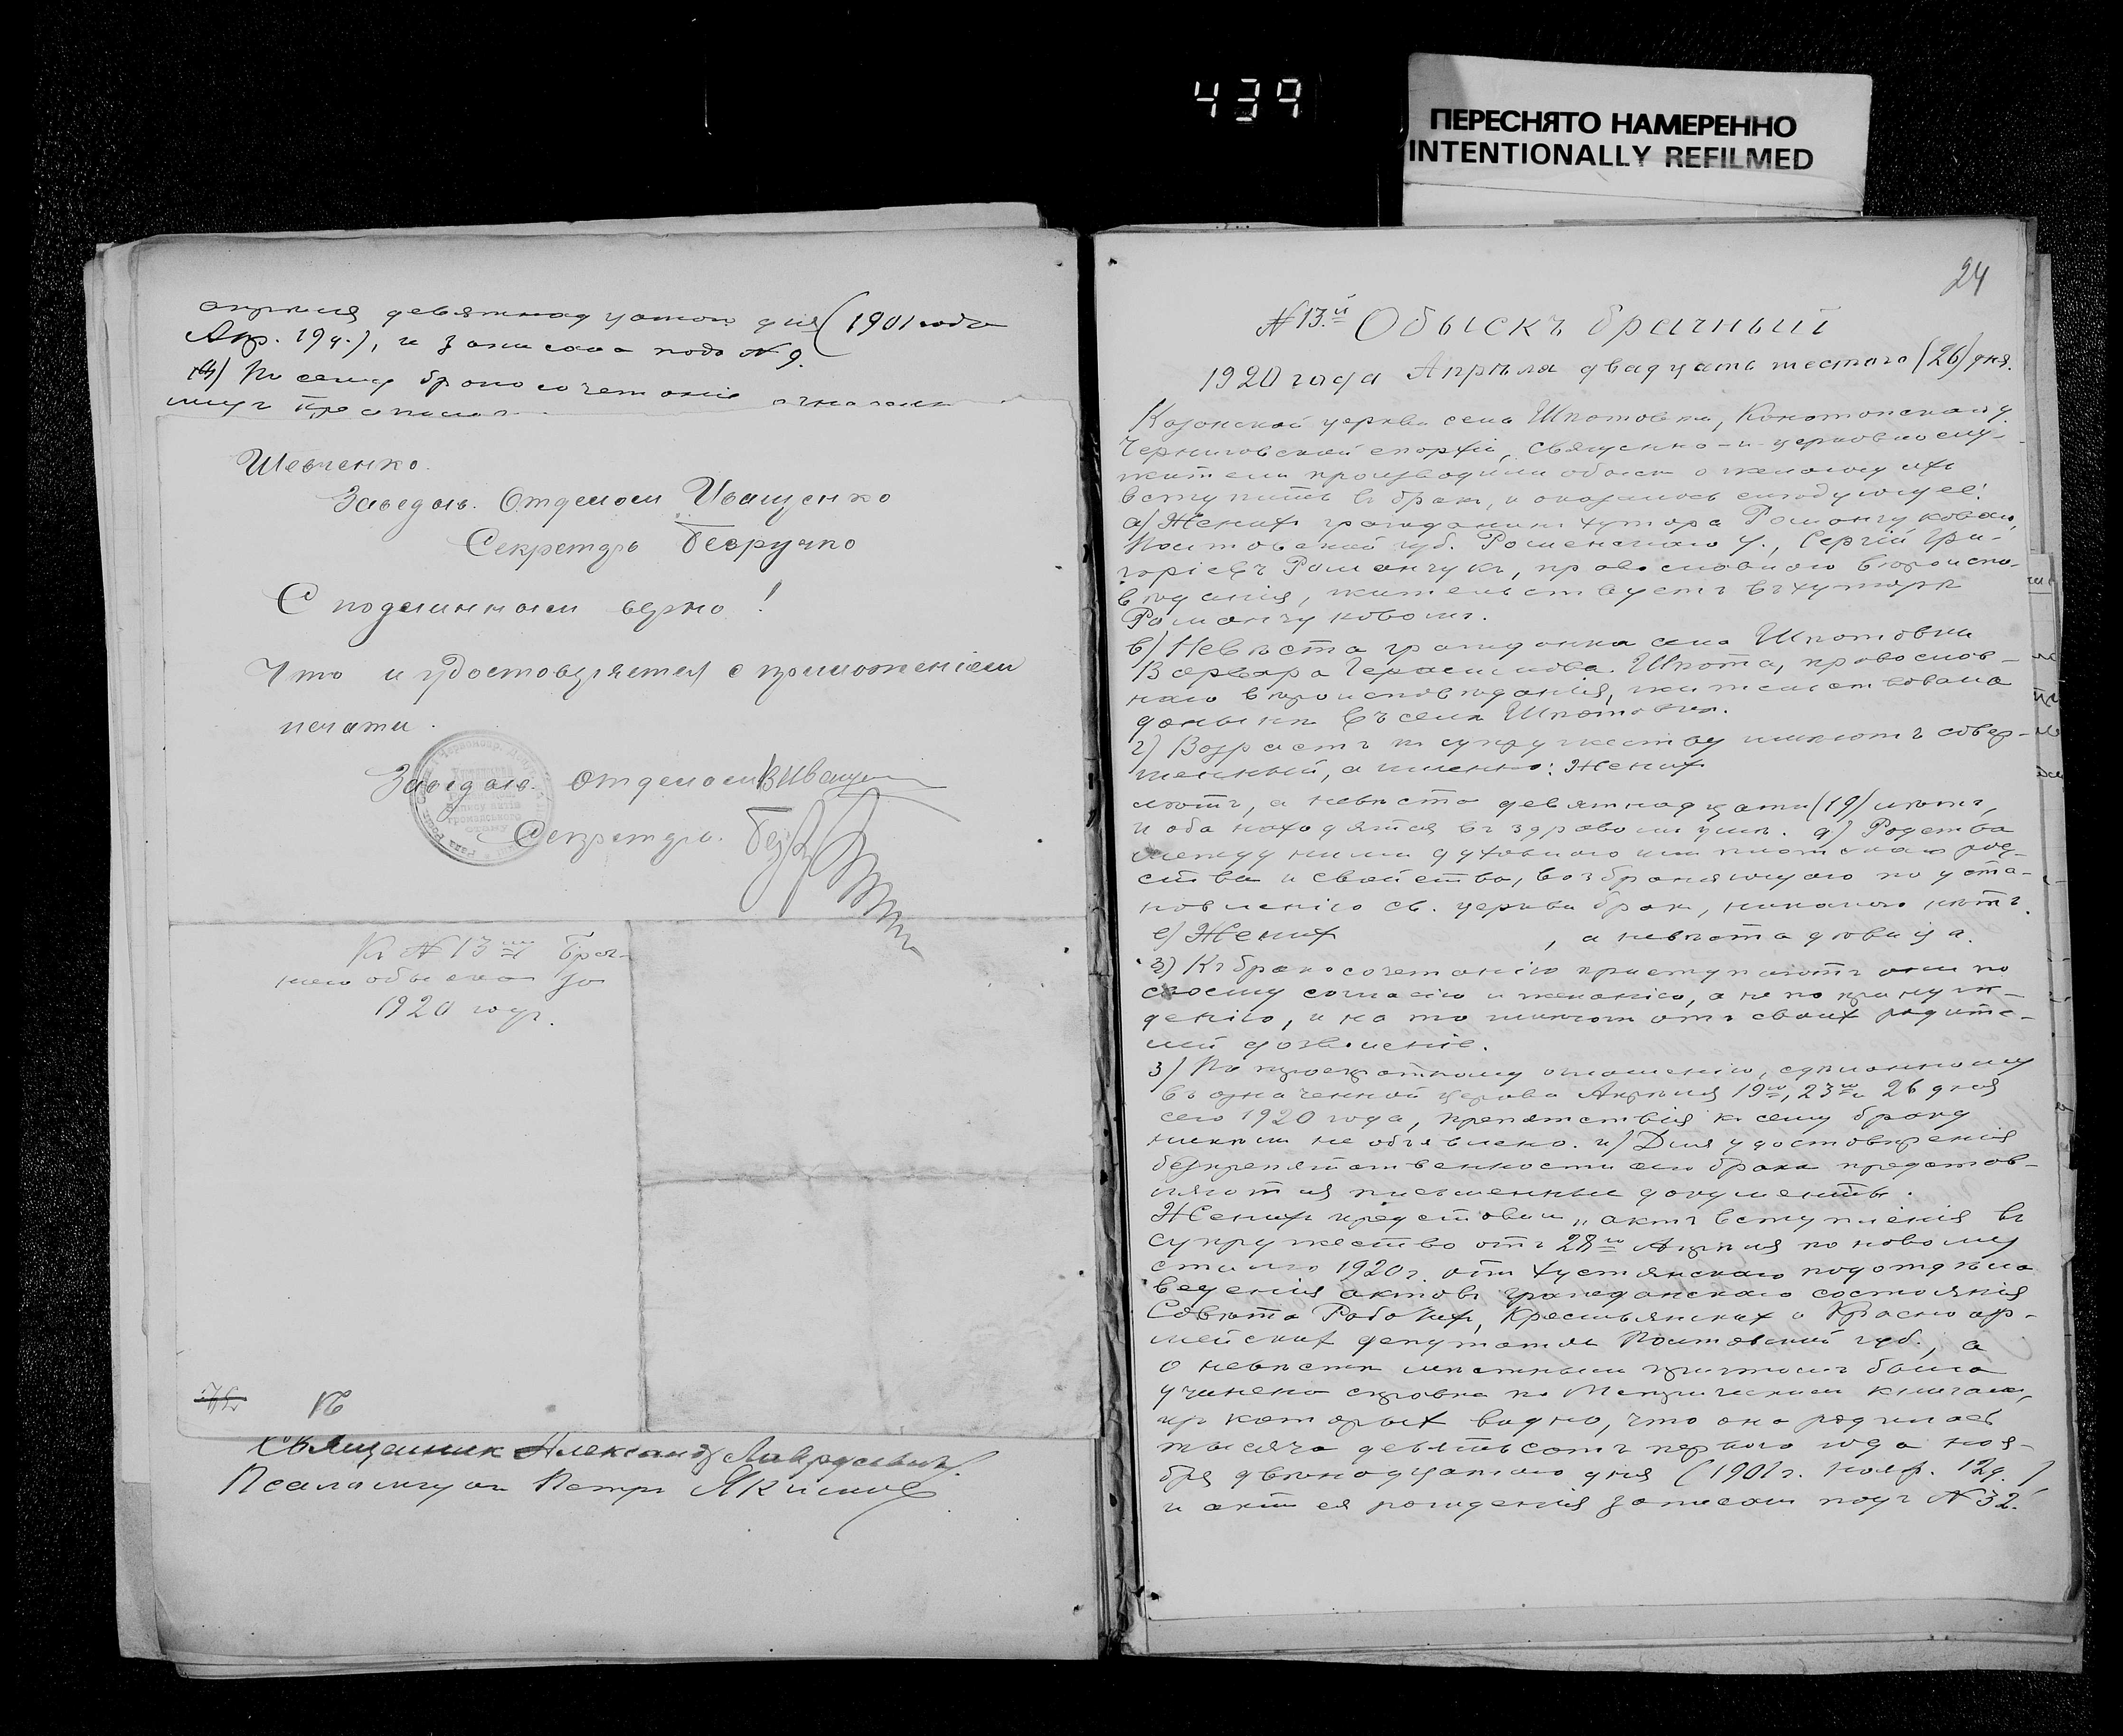 439
ПЕРЕСНЯТО НАМЕРЕННО
INTENTIONALLY REFILMED
апрѣля девятнадцатаго дня (1901 года
Апр. 19 д.), и записана подъ № 9.
По сему бракосочетаніе
Шевченко.
Заведыв. Отделом Иващенко
Секретарь Безручко
С подлинным верно!
Что и удостоверяется с приложеніем
печати.
Заведыв. отделом В Иващен
Секретарь. Без
Къ № 13му Брач-
наго обыска за
1920 годъ.
Священник Александр Лавровскій
Псаломщик Петръ Якимов
24
№ 13.й Обыскъ брачный
1920 года Апрѣля двадцать шестого (26) дня.
Казанской церкви села Шпотовки, Конотопскаго у.
Черниговской епархіи, священно-и-церковнослу-
жители производили обыскъ о желающихъ
вступить въ бракъ, и оказалось слѣдующее:
а) Женихъ гражданинъ хутора Романчукова,
Полтавской губ. Роменскаго у., Сергій Гри-
горіевъ Романчукъ, православнаго вѣроиспо-
вѣданія, жительствуетъ въ хуторѣ
Романчуковомъ.
в) Невѣста гражданка села Шпотовки
Варвара Герасимова Шпота, православ-
наго вѣроисповѣданія, жительствовала
донынѣ въ селѣ Шпотовкѣ.
г) Возрастъ къ супружеству имѣютъ совер-
шенный, а именно: Женихъ
лѣтъ, а невѣста девятнадцати (19) лѣтъ,
и оба находятся въ здравомъ умѣ. д) Родства
между ними духовнаго или плотскаго род-
ства и свойства, возбраняющаго по уста-
новленію св. церкви бракъ, никакого нѣтъ.
е) Женихъ , а невѣста дѣвица.
з) Къ бракосочетанію приступаютъ они по
своему согласію и желанію, а не по принуж-
денію, и на то имѣютъ отъ своихъ родите-
лей дозволеніе.
з) По троекратному оглашенію, сдѣланному
въ означенной церкви Апрѣля 19го, 23го и 26 дня
сего 1920 года, препятствія къ сему браку
никѣмъ не объявлено. и) Для удостовѣренія
безпрепятственности сего брака представ-
ляются письменные документы.
Женихъ представилъ „актъ вступленія въ
супружество отъ 28го Апрѣля по новому
стилю 1920 г. отъ Хустянскаго подотдѣла
веденія актовъ гражданскаго состоянія
Совѣта Рабочихъ, Крестьянскихъ и Красноар-
мейскихъ депутатовъ Полтавской губ., а
о невѣстѣ мѣстнымъ причтомъ была
учинена справка по Метрическимъ книгамъ,
изъ которыхъ видно, что она родилась
тысяча девятьсотъ перваго года ноя-
бря двѣнадцатаго дня (1901 г. нояб. 12 д.)
и актъ ея рожденія записанъ подъ № 32.